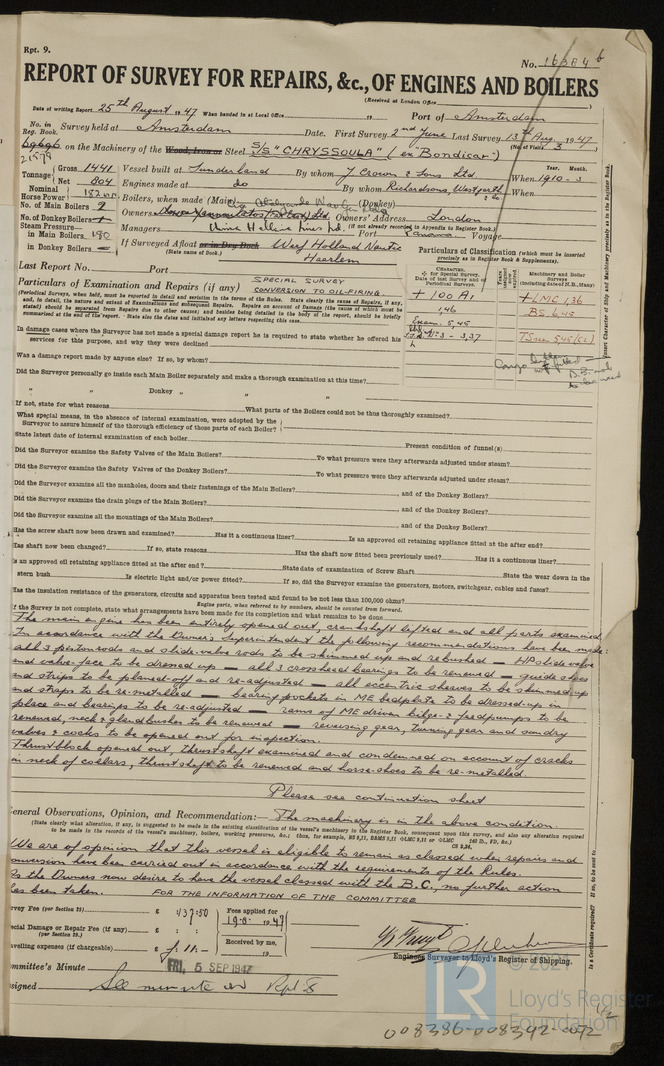 Rpt. 9.
No. 16364 b
REPORT OF SURVEY FOR REPAIRS, &c., OF ENGINES AND BOILERS
(Received at London Office
Date of writing Report 25th August 1947 When handed in at Local Office Port of Amsterdam
No. in Reg. Book. Survey held at Amsterdam Date. First Survey 2nd June Last Survey 13th Aug. 1947
(No. of Visits 3
69696 on the Machinery of the Wood, Iron or Steel S/S "CHRYSSOULA" (ex Bondicar)
21579
Tonnage Gross 1441 Net 804 Vessel built at Sunderland By whom J. Crown & Sons Ltd When 1910-3
Year. Month.
Engines made at do By whom Richardsons, Westgarth & Co When
Nominal Horse Power 182 Boilers, when made (Main) (Donkey)
No. of Main Boilers 2 Owners Owners' Address London
No. of Donkey Boilers (if not already recorded in Appendix to Register Book.)
Managers Port Panama Voyage
Steam Pressure in Main Boilers 180
in Donkey Boilers — If Surveyed Afloat or in Dry Dock Werf Holland Nautic Haarlem
(State name of Dock.)
Particulars of Classification (which must be inserted precisely as in Register Book & Supplements).
Last Report No. Port
Particulars of Examination and Repairs (if any) SPECIAL SURVEY
CONVERSION TO OIL-FIRING.
+ 100 A1
1,46
5,45
No 3 - 3,37
Machinery and Boiler Surveys (including date of N.B., Many)
+ LMC 1,36
BS 6,45
TS 5,45 (CL)
In damage cases where the Surveyor has not made a special damage report he is required to state whether he offered his services for this purpose, and why they were declined
Was a damage report made by anyone else? If so, by whom?
Did the Surveyor personally go inside each Main Boiler separately and make a thorough examination at this time?
" " Donkey " " "
If not, state for what reasons What parts of the Boilers could not be thus thoroughly examined?
What special means, in the absence of internal examination, were adopted by the Surveyor to assure himself of the thorough efficiency of those parts of each Boiler?
State latest date of internal examination of each boiler Present condition of funnel(s)
Did the Surveyor examine the Safety Valves of the Main Boilers? To what pressure were they afterwards adjusted under steam?
Did the Surveyor examine the Safety Valves of the Donkey Boilers? To what pressure were they afterwards adjusted under steam?
Did the Surveyor examine all the manholes, doors and their fastenings of the Main Boilers? and of the Donkey Boilers?
Did the Surveyor examine the drain plugs of the Main Boilers? and of the Donkey Boilers?
Did the Surveyor examine all the mountings of the Main Boilers? and of the Donkey Boilers?
Has the screw shaft now been drawn and examined? Has it a continuous liner? Is an approved oil retaining appliance fitted at the after end?
Has shaft now been changed? If so, state reasons Has the shaft now fitted been previously used? Has it a continuous liner?
Is an approved oil retaining appliance fitted at the after end? State date of examination of Screw Shaft State the wear down in the
stern bush Is electric light and/or power fitted? If so, did the Surveyor examine the generators, motors, switchgear, cables and fuses?
Has the insulation resistance of the generators, circuits and apparatus been tested and found to be not less than 100,000 ohms?
Engine parts, when referred to by numbers, should be counted from forward.
If the Survey is not complete, state what arrangements have been made for its completion and what remains to be done
The main engine has been entirely opened out, crankshaft lifted and all parts examined.
In accordance with the Owner's Superintendent the following recommendations have been made:
all 3 pistonrods and slide-valve rods to be skimmed up and rebushed — HP slide valve
and valve-face to be dressed up — all 3 crosshead bearings to be renewed — guide shoes
and strips to be planed-off and re-adjusted — all eccentric sheaves to be skimmed up
and straps to be re-metalled — bearing pockets in ME bedplate to be dressed-up in
place and bearings to be re-adjusted — rams of ME driven bilge- & feedpumps to be
renewed, neck & glandbushes to be renewed — reversing gear, turning gear and sundry
valves & cocks to be opened out for inspection.
Thrustblock opened out, thrustshaft examined and condemned on account of cracks
in neck of collars, thrustshaft to be renewed and horse-shoes to be re-metalled.
Please see continuation sheet
General Observations, Opinion, and Recommendation:— The machinery is in the above condition.
(State clearly what alteration, if any, is suggested to be made in the existing classification of the vessel's machinery in the Register Book, consequent upon this survey, and also any alteration required
to be made in the records of the vessel's machinery, boilers, working pressures, &c.;
We are of opinion that this vessel is eligible to remain as classed when repairs and
conversion have been carried out in accordance with the requirements of the Rules.
As the Owners now desire to have the vessel classed with the B.C., no further action
has been taken. FOR THE INFORMATION OF THE COMMITTEE
Survey Fee (per Section 29) £ 437:50 Fees applied for
19-8- 1947
Special Damage or Repair Fee (if any) £ : :
(per Section 29.)
Received by me,
19
Travelling expenses (if chargeable) £
Engineer Surveyor to Lloyd's Register of Shipping.
Committee's Minute FRI. 5 SEP 1947
Assigned See minute on Rpt 8
Is a Certificate required? If so, to be sent to
LR
© 2021
Lloyd's Register
Foundation
1/2
008386-008392-0072